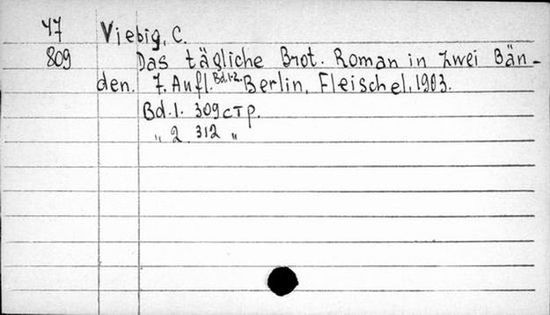 47 Viebig, C.
809 Das tägliche Brot. Roman in zwei Bän-
den. 7. Aufl. Bd.1-2. Berlin, Fleischel, 1903.
Bd. 1. 309 стр.
„ 2. 312 „